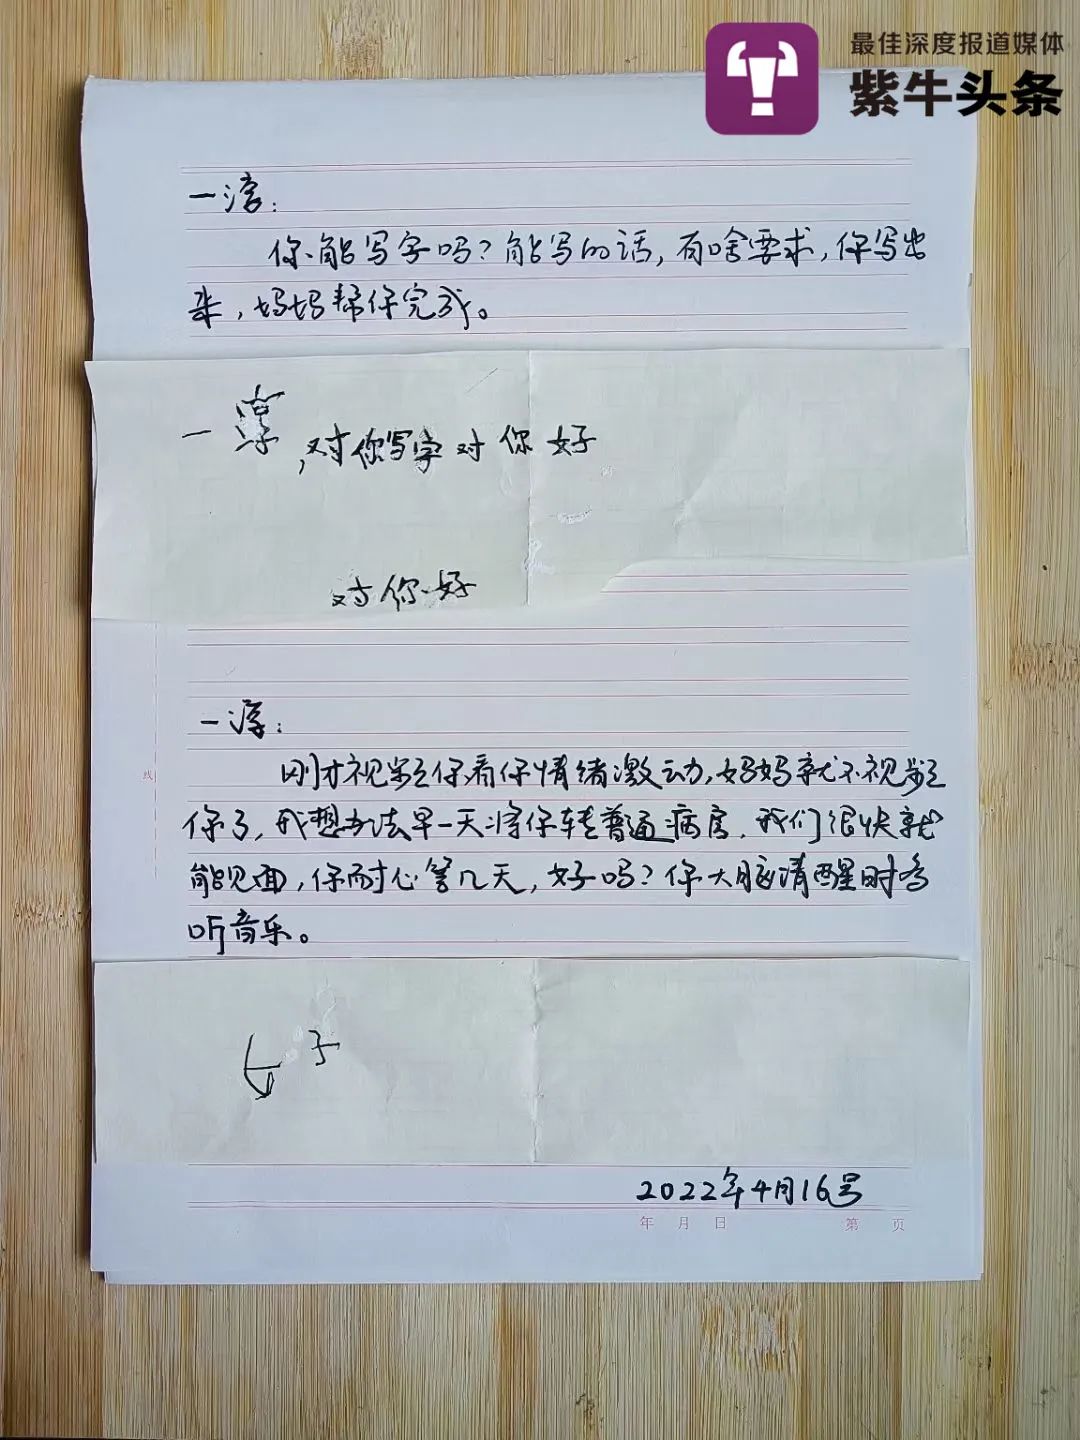 最佳深度报道媒体
紫牛头条
一淳：
你能写字吗？能写的话，有啥要求，你写出
来，妈妈帮你完成。
一淳，对你写字对你好
对你好
一淳：
刚才视频你看你情绪激动，妈妈就不视频
你了，我想办法早一天将你转普通病房，我们很快就
能见面，你耐心等几天，好吗？你大脑清醒时多
听音乐。
线
好
2022年4月16号
年 月 日 第 页